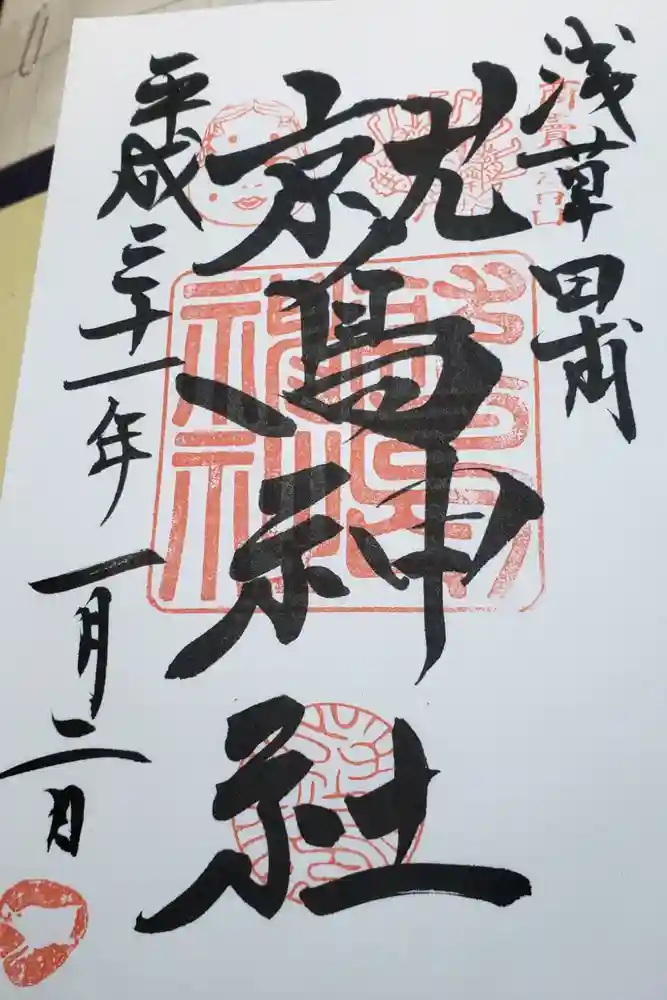 浅草田甫
鷲神社
平成三十一年一月二日